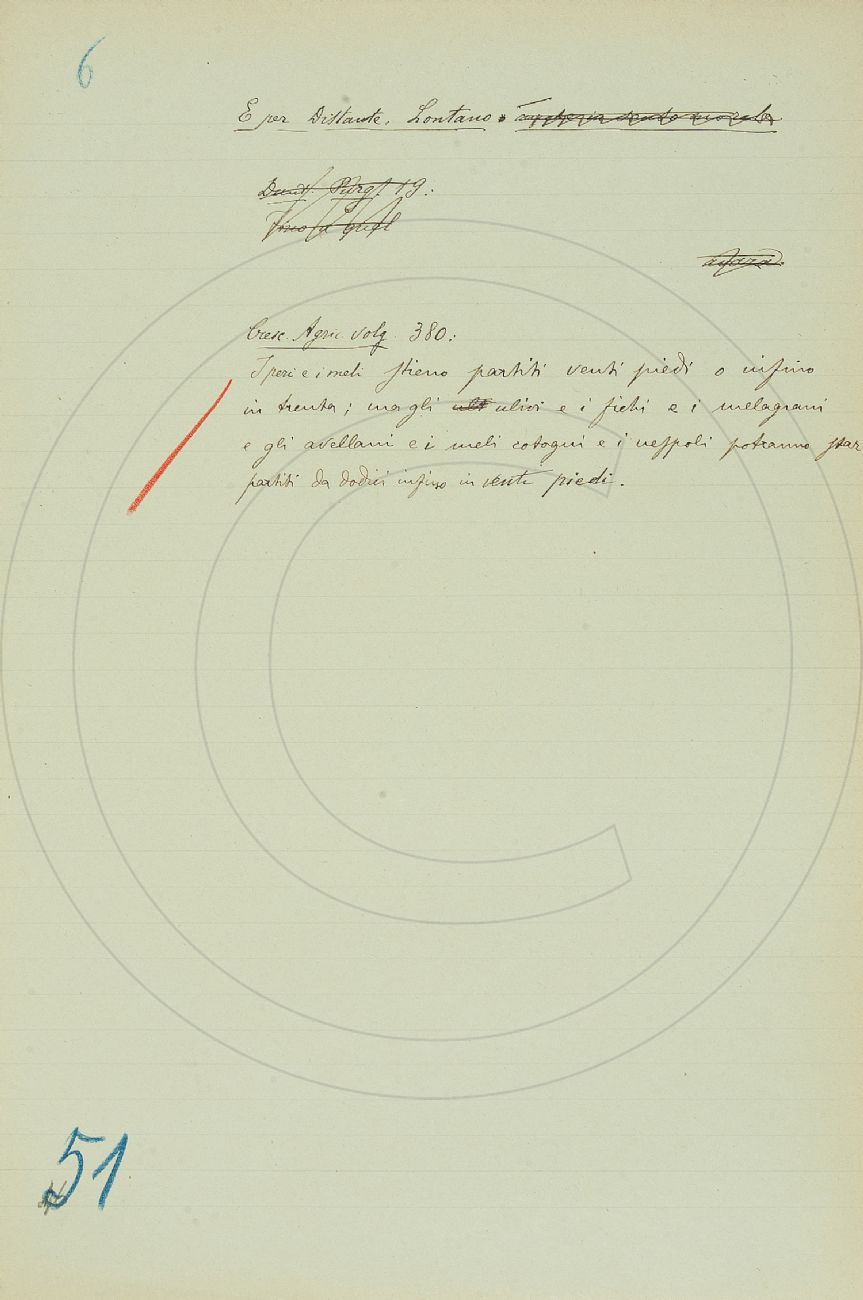 6
E per Distante, Lontano
Dant. Purg. 19:
Fino a quel
Cresc. Agric. volg. 380:
I peri e i meli stieno partiti venti piedi o infino
in trenta; ma gli ulivi e i fichi e i melagrani
e gli avellani e i meli cotogni e i nespoli potranno star
partiti da dodici infino in venti piedi.
51